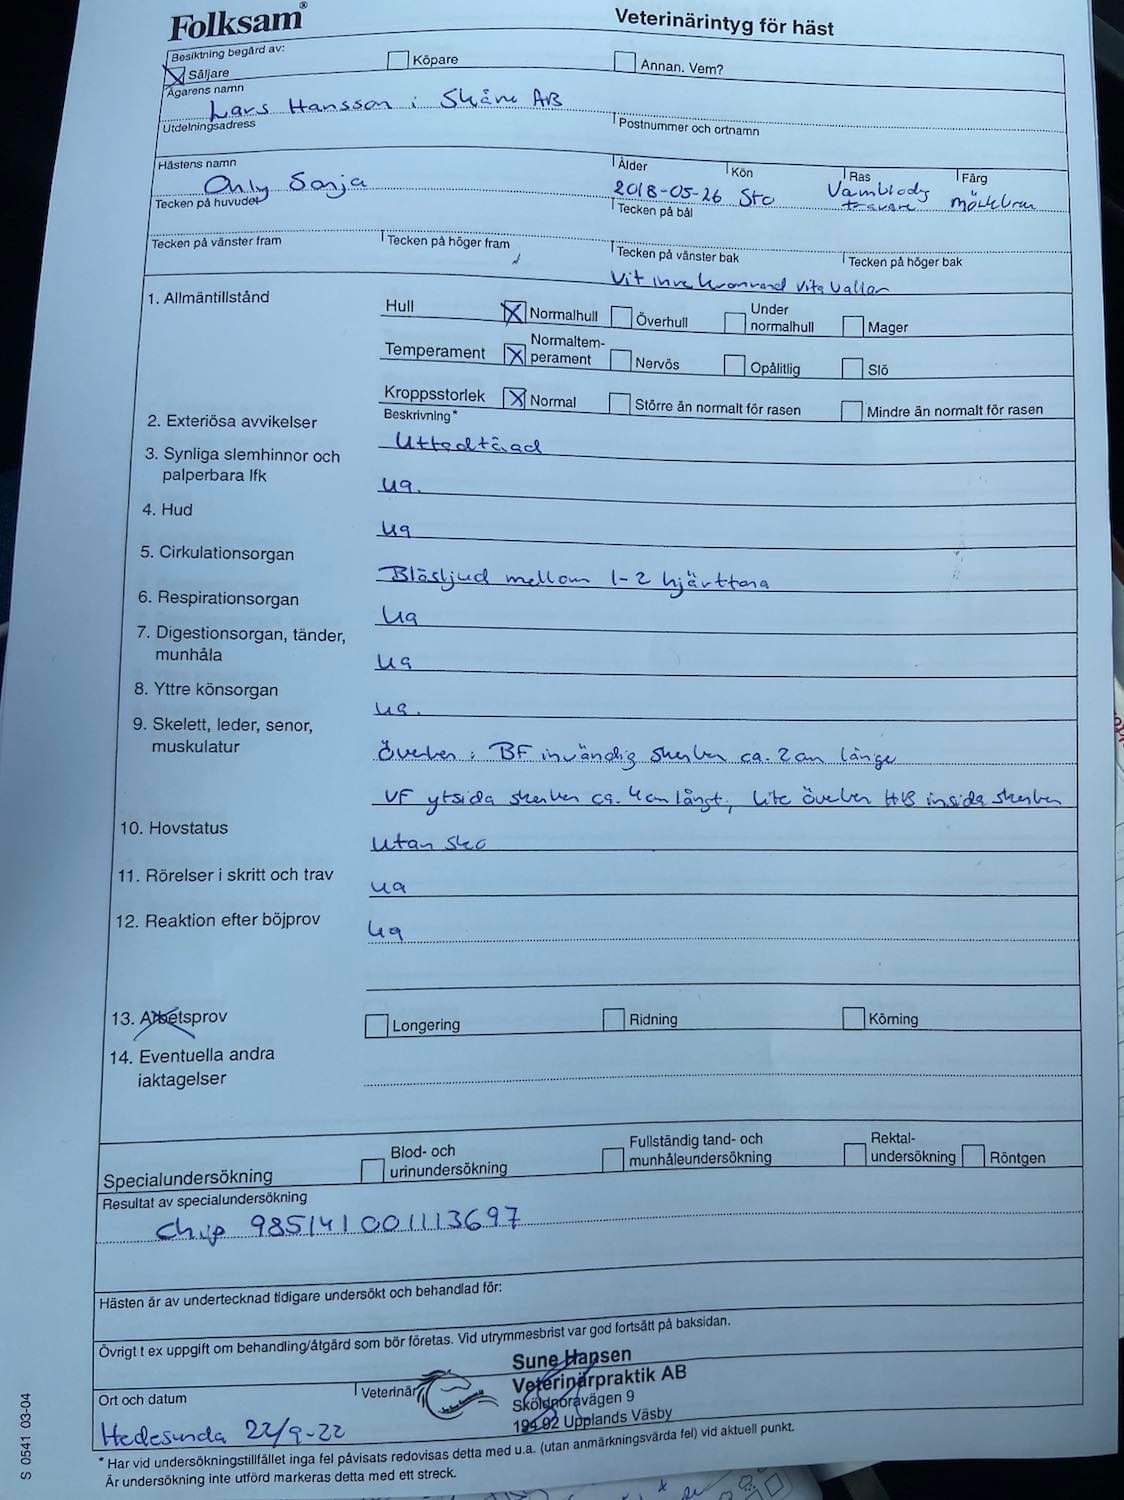 Folksam®
Veterinärintyg för häst
Besiktning begärd av:
Säljare
Köpare
Annan. Vem?
Ägarens namn
Lars Hansson i Skåne AB
Utdelningsadress
Postnummer och ortnamn
Hästens namn
Ålder
Kön
Ras
Färg
Only Sonja
2018-05-26 Sto
Varmblodg
travare
mörkbrun
Tecken på huvudet
Tecken på bål
Tecken på vänster fram
Tecken på höger fram
Tecken på vänster bak
Tecken på höger bak
Vit inre kronrand vita ballar
1. Allmäntillstånd
Hull
Normalhull
Överhull
Under
normalhull
Mager
Temperament
Normaltem-
perament
Nervös
Opålitlig
Slö
Kroppsstorlek
Normal
Större än normalt för rasen
Mindre än normalt för rasen
Beskrivning*
2. Exteriösa avvikelser
Uttedtåad
3. Synliga slemhinnor och
palperbara lfk
ua.
4. Hud
ua
5. Cirkulationsorgan
Blåsljud mellom 1-2 hjärttona
6. Respirationsorgan
ua
7. Digestionsorgan, tänder,
munhåla
ua
8. Yttre könsorgan
ua.
9. Skelett, leder, senor,
muskulatur
Överben: BF invändig skenben ca. 2 cm långe
VF ytsida skenben ca. 4 cm långt, lite överben HB insida skenben
10. Hovstatus
utan sko
11. Rörelser i skritt och trav
ua
12. Reaktion efter böjprov
ua
13. Arbetsprov
Longering
Ridning
Körning
14. Eventuella andra
iaktagelser
Specialundersökning
Blod- och
urinundersökning
Fullständig tand- och
munhåleundersökning
Rektal-
undersökning
Röntgen
Resultat av specialundersökning
Chip 985141001113697
Hästen är av undertecknad tidigare undersökt och behandlad för:
Övrigt t ex uppgift om behandling/åtgärd som bör företas. Vid utrymmesbrist var god fortsätt på baksidan.
Ort och datum
Veterinär
Sune Hansen
Veterinärpraktik AB
Sköldnoravägen 9
194 92 Upplands Väsby
Hedesunda 22/9-22
* Har vid undersökningstillfället inga fel påvisats redovisas detta med u.a. (utan anmärkningsvärda fel) vid aktuell punkt.
Är undersökning inte utförd markeras detta med ett streck.
S 0541 03-04